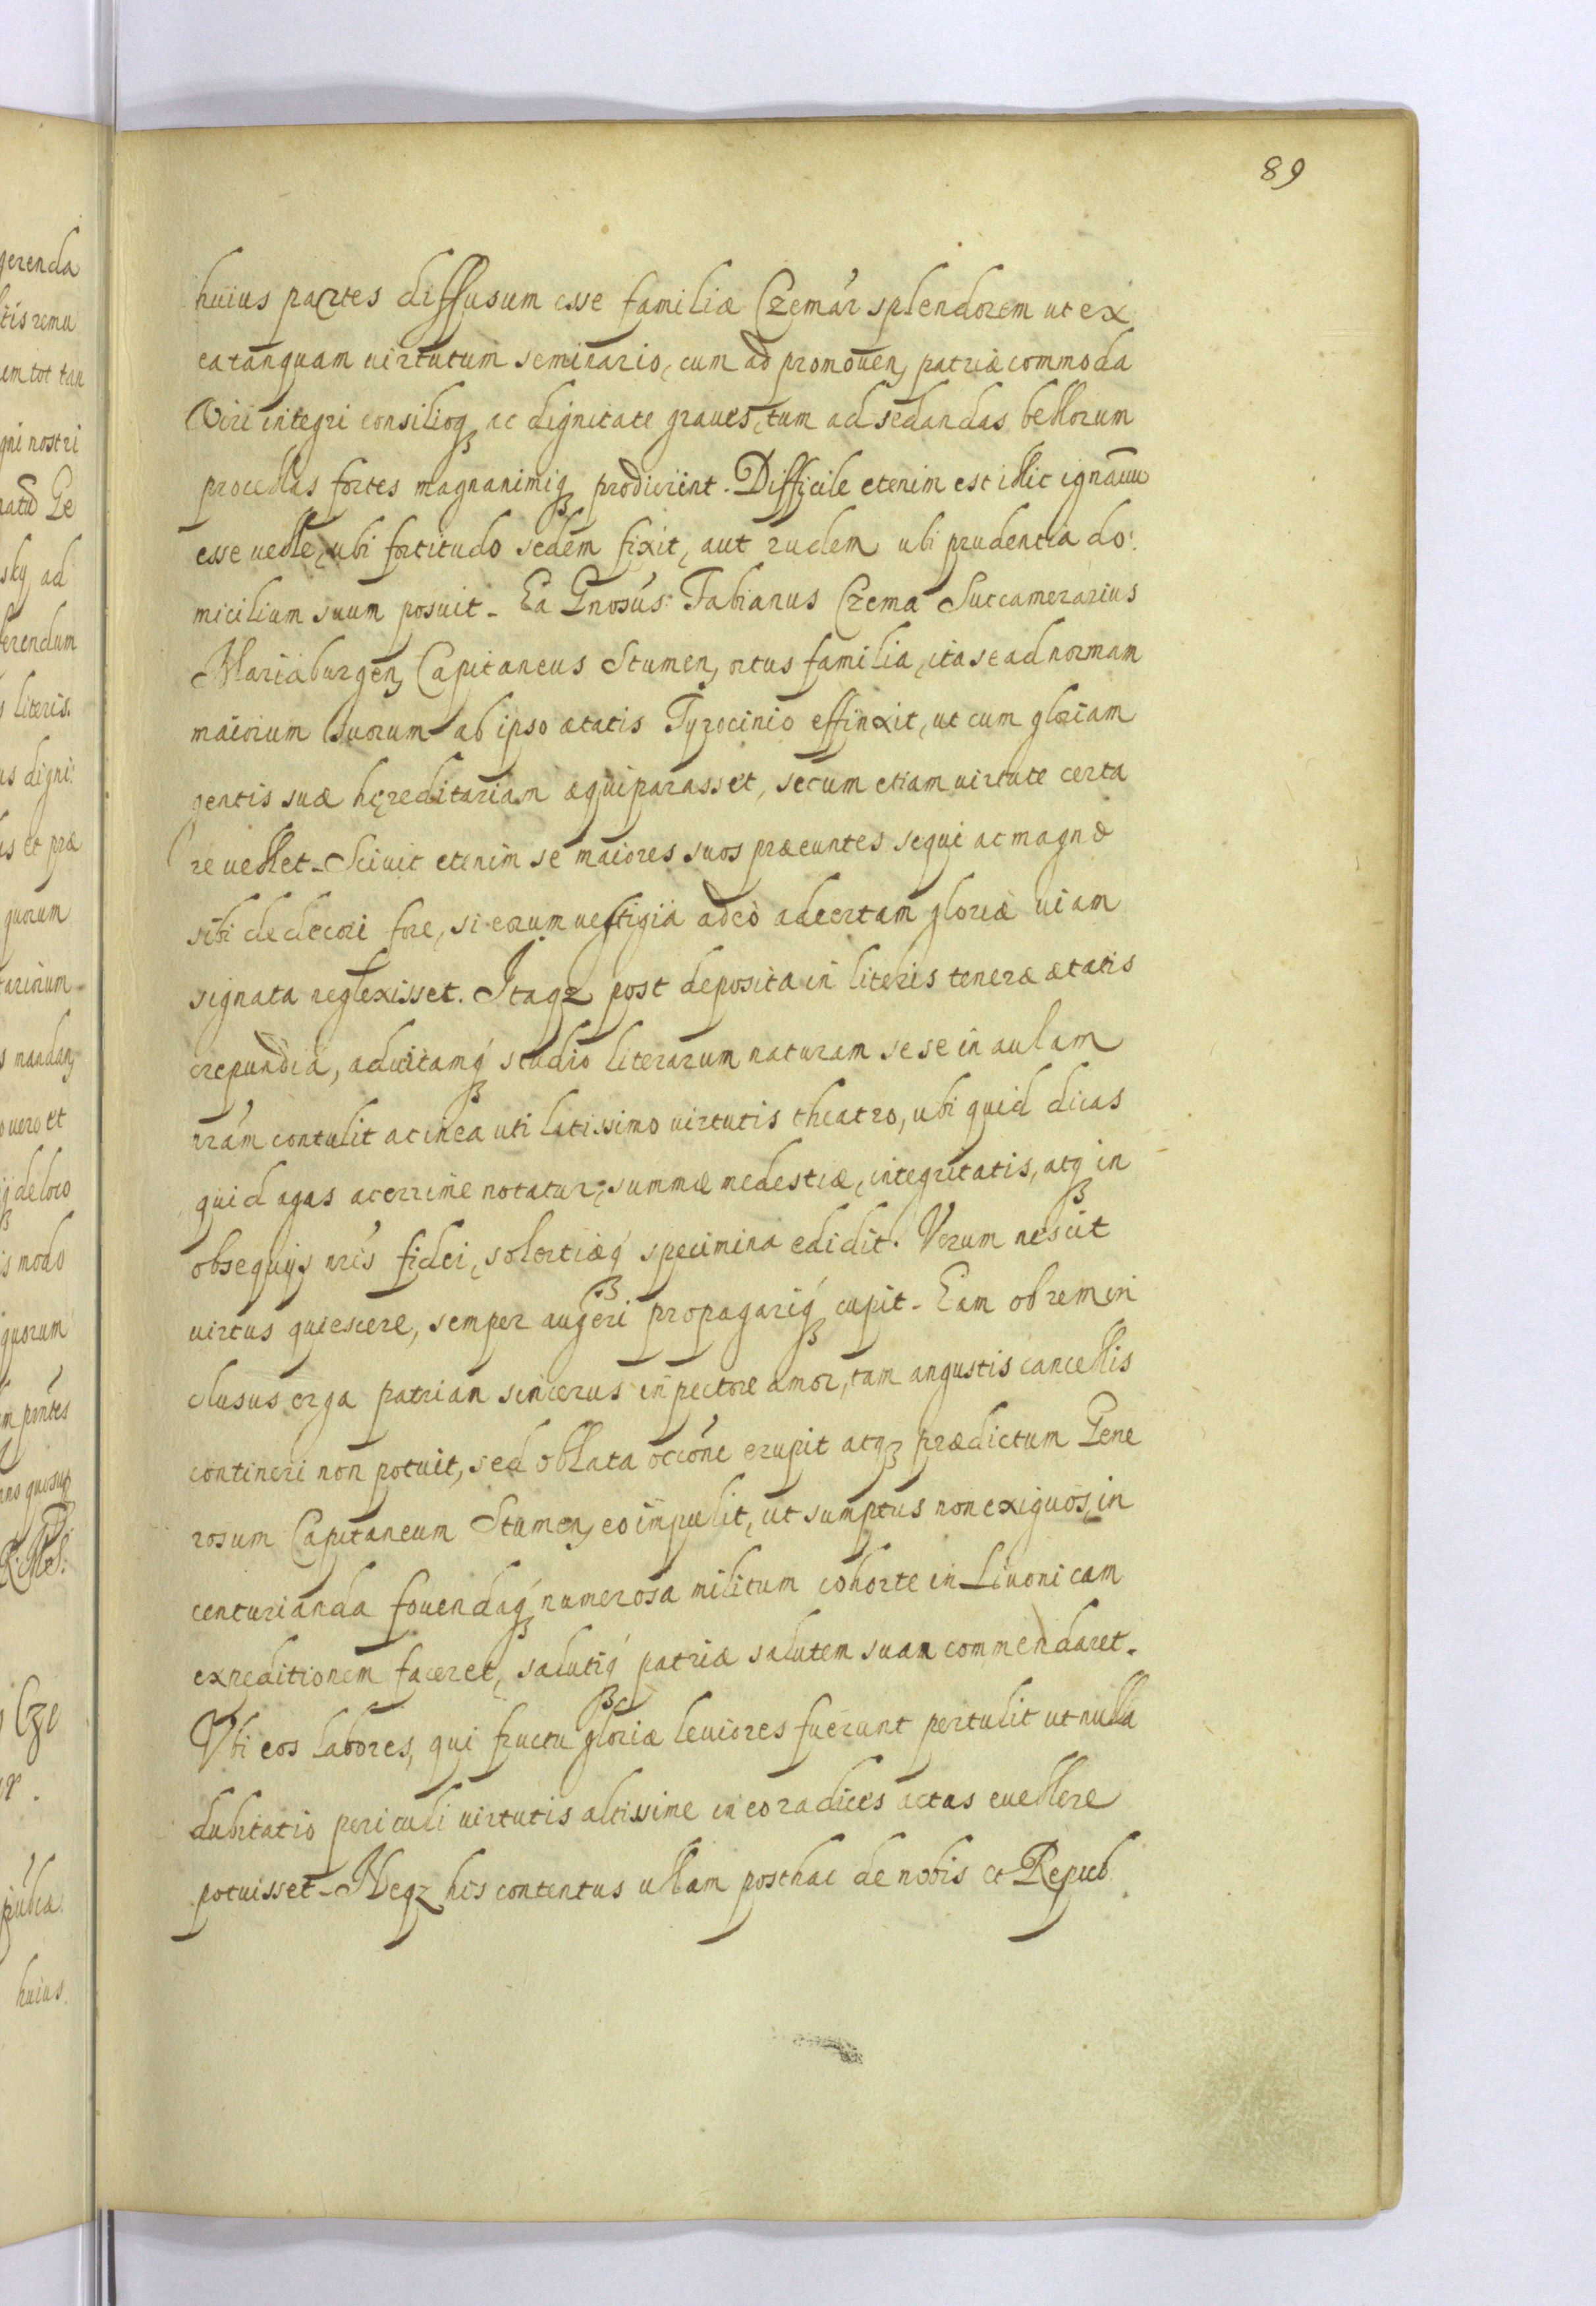 89
huius partes diffusum esse familiæ Czemár splendorem ut ex
ea tanquam uirtutum seminario, cum ad promouen, patriæ commoda
Viri integri consilioq₃ ac dignitate graues, tum ad sedandas bellorum
procellas fortes magnanimiq₃ prodierint. Difficile etenim est illic ignauu
esse uelle, ubi fortitudo sedem fixit, aut rudem ubi prudentia do:
micilium suum posuit. Ea Gnosús: Fabianus Czema Succamerarius
Mariaburgen, Capitaneus Stumen, ortus familia, ita se ad normam
maiorum suorum ab ipso ætatis Tyrocinio effinxit, ut cum gloriam
gentis suæ hęreditariam æquiparasset, secum etiam uirtute certa
re uellet. Sciuit etenim se maiores suos præeuntes sequi ac magnæ
sibi dedecori fore, si eorum uestigia adeò ad certam gloriæ uiam
signata neglexisset. Itaqz post deposita in literis teneræ ætatis
crepundia, aduitamq́₃ studio literarum naturam sese in aulam
nrám contulit ac in ea uti latissimo uirtutis theatro, ubi quid dicas
quid agas acerrime notatur, summæ modestiæ, integritatis, atq₃ in
obsequijs nrís fidei, solertiæq́₃ specimina edidit. Verum nescit
uirtus quiescere, semper augeri propagariq́₃ cupit. Eam ob rem in
clusus erga patriam sincerus in pectore amor, tam angustis cancellis
contineri non potuit, sed oblata occóne erupit atq₃ prædictum Gene
rosum Capitaneum Stumen, eo impulit, ut sumptus non exiguos, in
centurianda fouendaq́₃ numerosa militum cohorte in Liuonicam
expeditionem faceret, salutiq́₃ patriæ salutem suam commendaret.
Vbi eos labores, qui fructu gloriæ leuiores fuerunt pertulit ut nulla
dubitatio periculi uirtutis altissime in eo radices actas euellere
potuisset. Neqz his contentus ullam posthac de nobis et Repub.